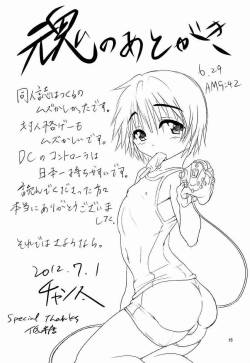 魂のあとがき
6.29
AM9:42
同人誌はつくるの
ムズかしかったです。
対人格ゲーも
ムズかしいです。
DCのコントローラは
日本一持ちやすいです。
読んでくださった方に
本当にありがとうございま
した。
それではさようなら。
2012.7.1
Special Thanks